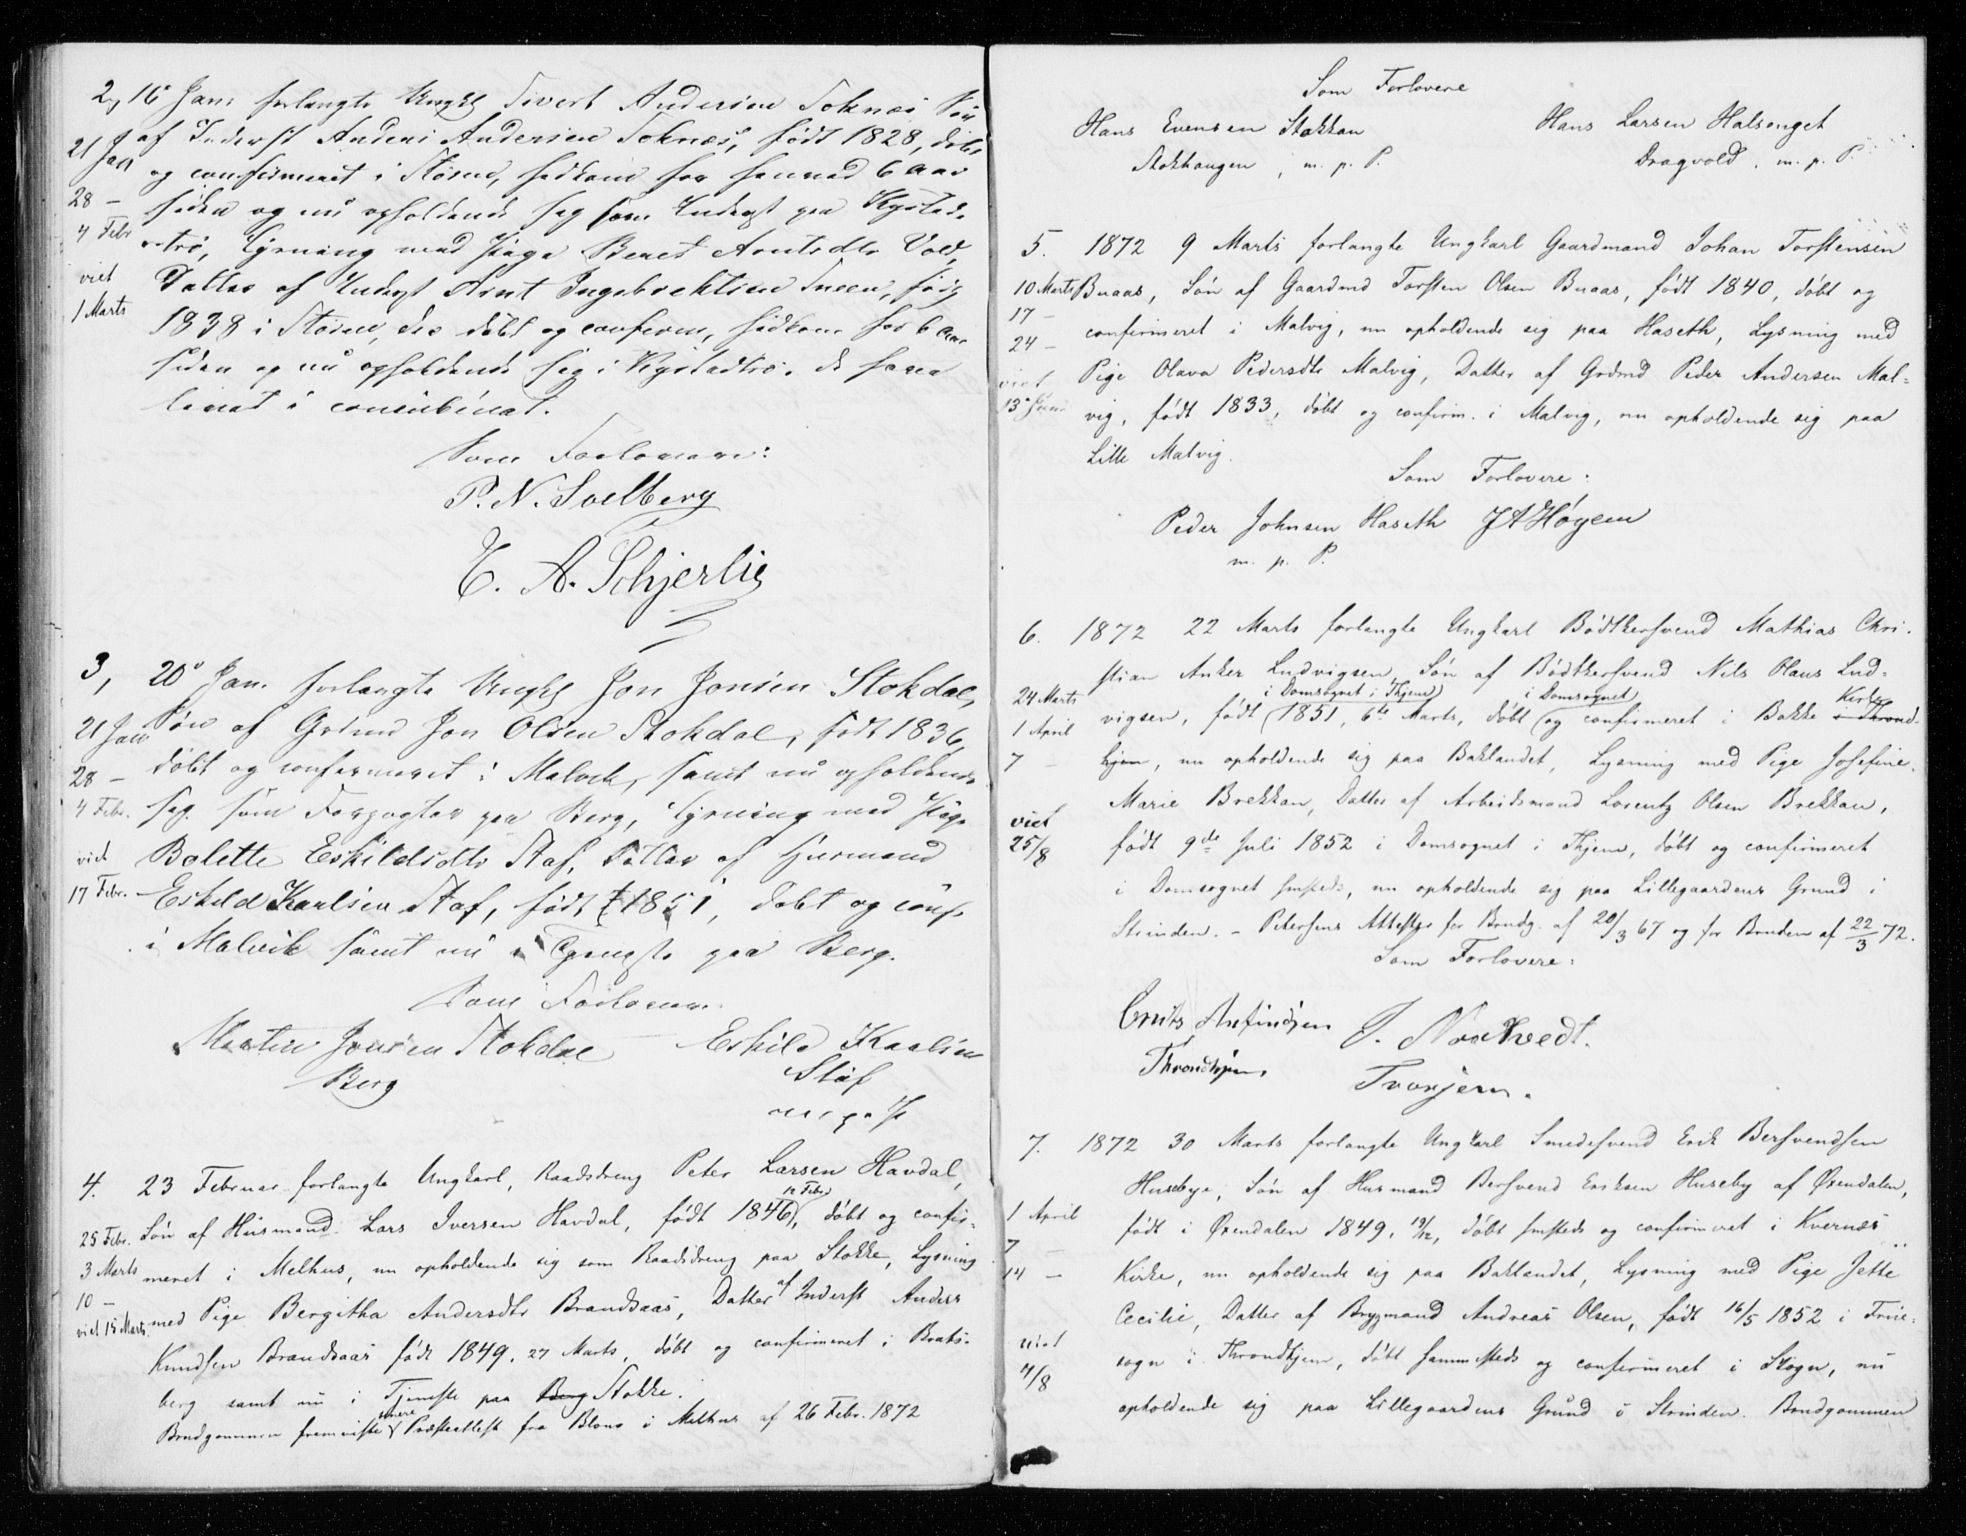 2, 16 Jan. forlangte Ungkl Sivert Andersen Toknæs Søn
af Inderst Anders Andersen Toknæs, født 1828, døbt
21 Jan og confirmeret i Støren, hidkom for henved 6 Aar
28 — siden og nu opholdende sig som Inderst paa Rystad-
4 Febr trø, Lysning med Pige Beret Arntsdtr Vold,
viet Datter af Inderst Arnt Ingebrektsen Sneen, født
1 Marts 1838 i Støren, der døbt og confirm., hidkom for 6 Aar
siden og nu opholdende sig i Rystadtrø. De have
levet i concubinat.
Som Forlovere:
P. N. Soelberg
E. A. Schjerlie
3, 20 Jan. forlangte Ungkl Jon Jonsen Stokdal,
21 Jan Søn af Grdmd Jon Olsen Stokdal, født 1836,
28 — døbt og confirmeret i Malvik, samt nu opholdende
4 Febr. sig som Forpagter paa Berg, Lysning med Pige
viet Bolette Eskildsdtr Staf, Datter af Husmand
17 Febr. Eskild Karlsen Staf, født 1851, døbt og conf.
i Malvik samt nu i Tjeneste paa Berg.
Som Forlovere
Martin Jonsen Stokdal Eskild Karlsen
Berg Staf
m. p. P.
4. 23 Februar forlangte Ungkarl, Raadsdreng Peter Larsen Havdal,
12 Febr
25 Febr. Søn af Husmand Lars Iversen Havdal, født 1846, døbt og confir-
3 Marts meret i Melhus, nu opholdende sig som Raadsdreng paa Stokke, Lysning
10 —
viet 15 Marts. med Pige Bergitha Andersdtr Brandsaas, Datter af Inderst Anders
Knudsen Brandsaas født 1849, 27 Marts, døbt og confirmeret i Brats-
berg samt nu i Tjeneste paa Berg Stokke.
Brudgommen fremviste senere Præsteattest fra Blom i Melhus af 26 Febr. 1872
Som Forlovere
Hans Evensen Stokkan Hans Larsen Halsenget
Stokhaugen, m. p. P. Dragvold, m. p. P.
5. 1872 9 Marts forlangte Ungkarl Gaardmand Johan Torstensen
10 Marts Buaas, Søn af Gaardmd Torsten Olsen Buaas, født 1840, døbt og
17 —
24 — confirmeret i Malvig, nu opholdende sig paa Haseth, Lysning med
viet Pige Olava Pedersdtr Malvig, Datter af Grdmd Peder Andersen Mal-
13 Juni vig, født 1833, døbt og confirm. i Malvig, nu opholdende sig paa
Lille Malvig.
Som Forlovere:
Peder Johnsen Haseth J A Høyem
m. p. P.
6. 1872 22 Marts forlangte Ungkarl Bødkersvend Mathias Chri-
stian Anker Ludvigsen, Søn af Bødkersvend Nils Olaus Lud-
24 Marts i Domsognet i Thjem i Domsognet Kirke
1 April vigsen, født 1851, 6te Marts, døbt og confirmeret i Bakke i Thrond-
7 — hjem, nu opholdende sig paa Baklandet, Lysning med Pige Josefine
Marie Brekkan, Datter af Arbeidsmand Lorentz Olsen Brekkan,
viet
25/8 født 9de Juli 1852 i Domsognet i Thjem, døbt og confirmeret
i Domsognet smsteds, nu opholdende sig paa Lillegaardens Grund i
Strinden. – Petersens Attester for Brudg. af 20/3 67 og for Bruden af 22/3 72.
Som Forlovere:
Arfindsen J. Nordtvedt.
Throndhjem. Tronjem.
7. 1872 30 Marts forlangte Ungkarl Smedesvend Erik Bersvendsen
Husebye, Søn af Husmand Bersvend Eriksen Huseby af Ørendalen,
1 April født i Ørendalen 1849, 19/12, døbt smsteds og confirmeret i Kvernes
7 —
14 — Kirke, nu opholdende sig paa Baklandet, Lysning med Pige Jette
Cecilie, Datter af Brygmand Andreas Olsen, født 16/5 1852 i Frue-
viet sogn i Throndhjem, døbt sammesteds og confirmeret i Skogn, nu
4/8 opholdende sig paa Lillegaardens Grund i Strinden. Brudgommen